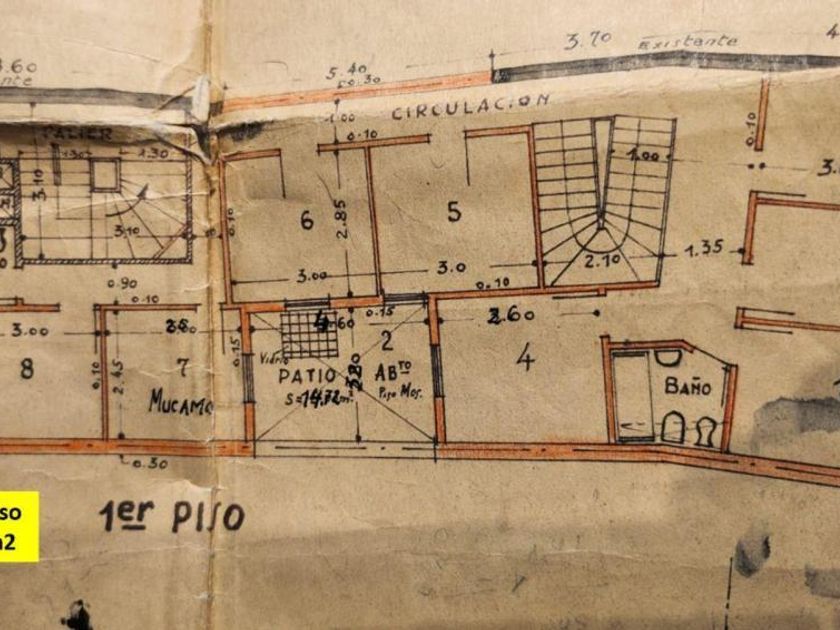 3.60
5.40
0.30
3.70
Existente
CIRCULACION
1.00
0.10
PALIER
1.30
2.30
3.10
3.10
0.10
6
2.85
5
1.00
0.10
3.00
3.0
2.10
1.35
0.90
0.10
0.10
3.00
0.15
2.60
8
7
0.15
2
4
0.10
2.45
MUCAMO
Vidrio
PATIO
ABTO
Piso Mos.
BAÑO
0.30
1er PISO
so